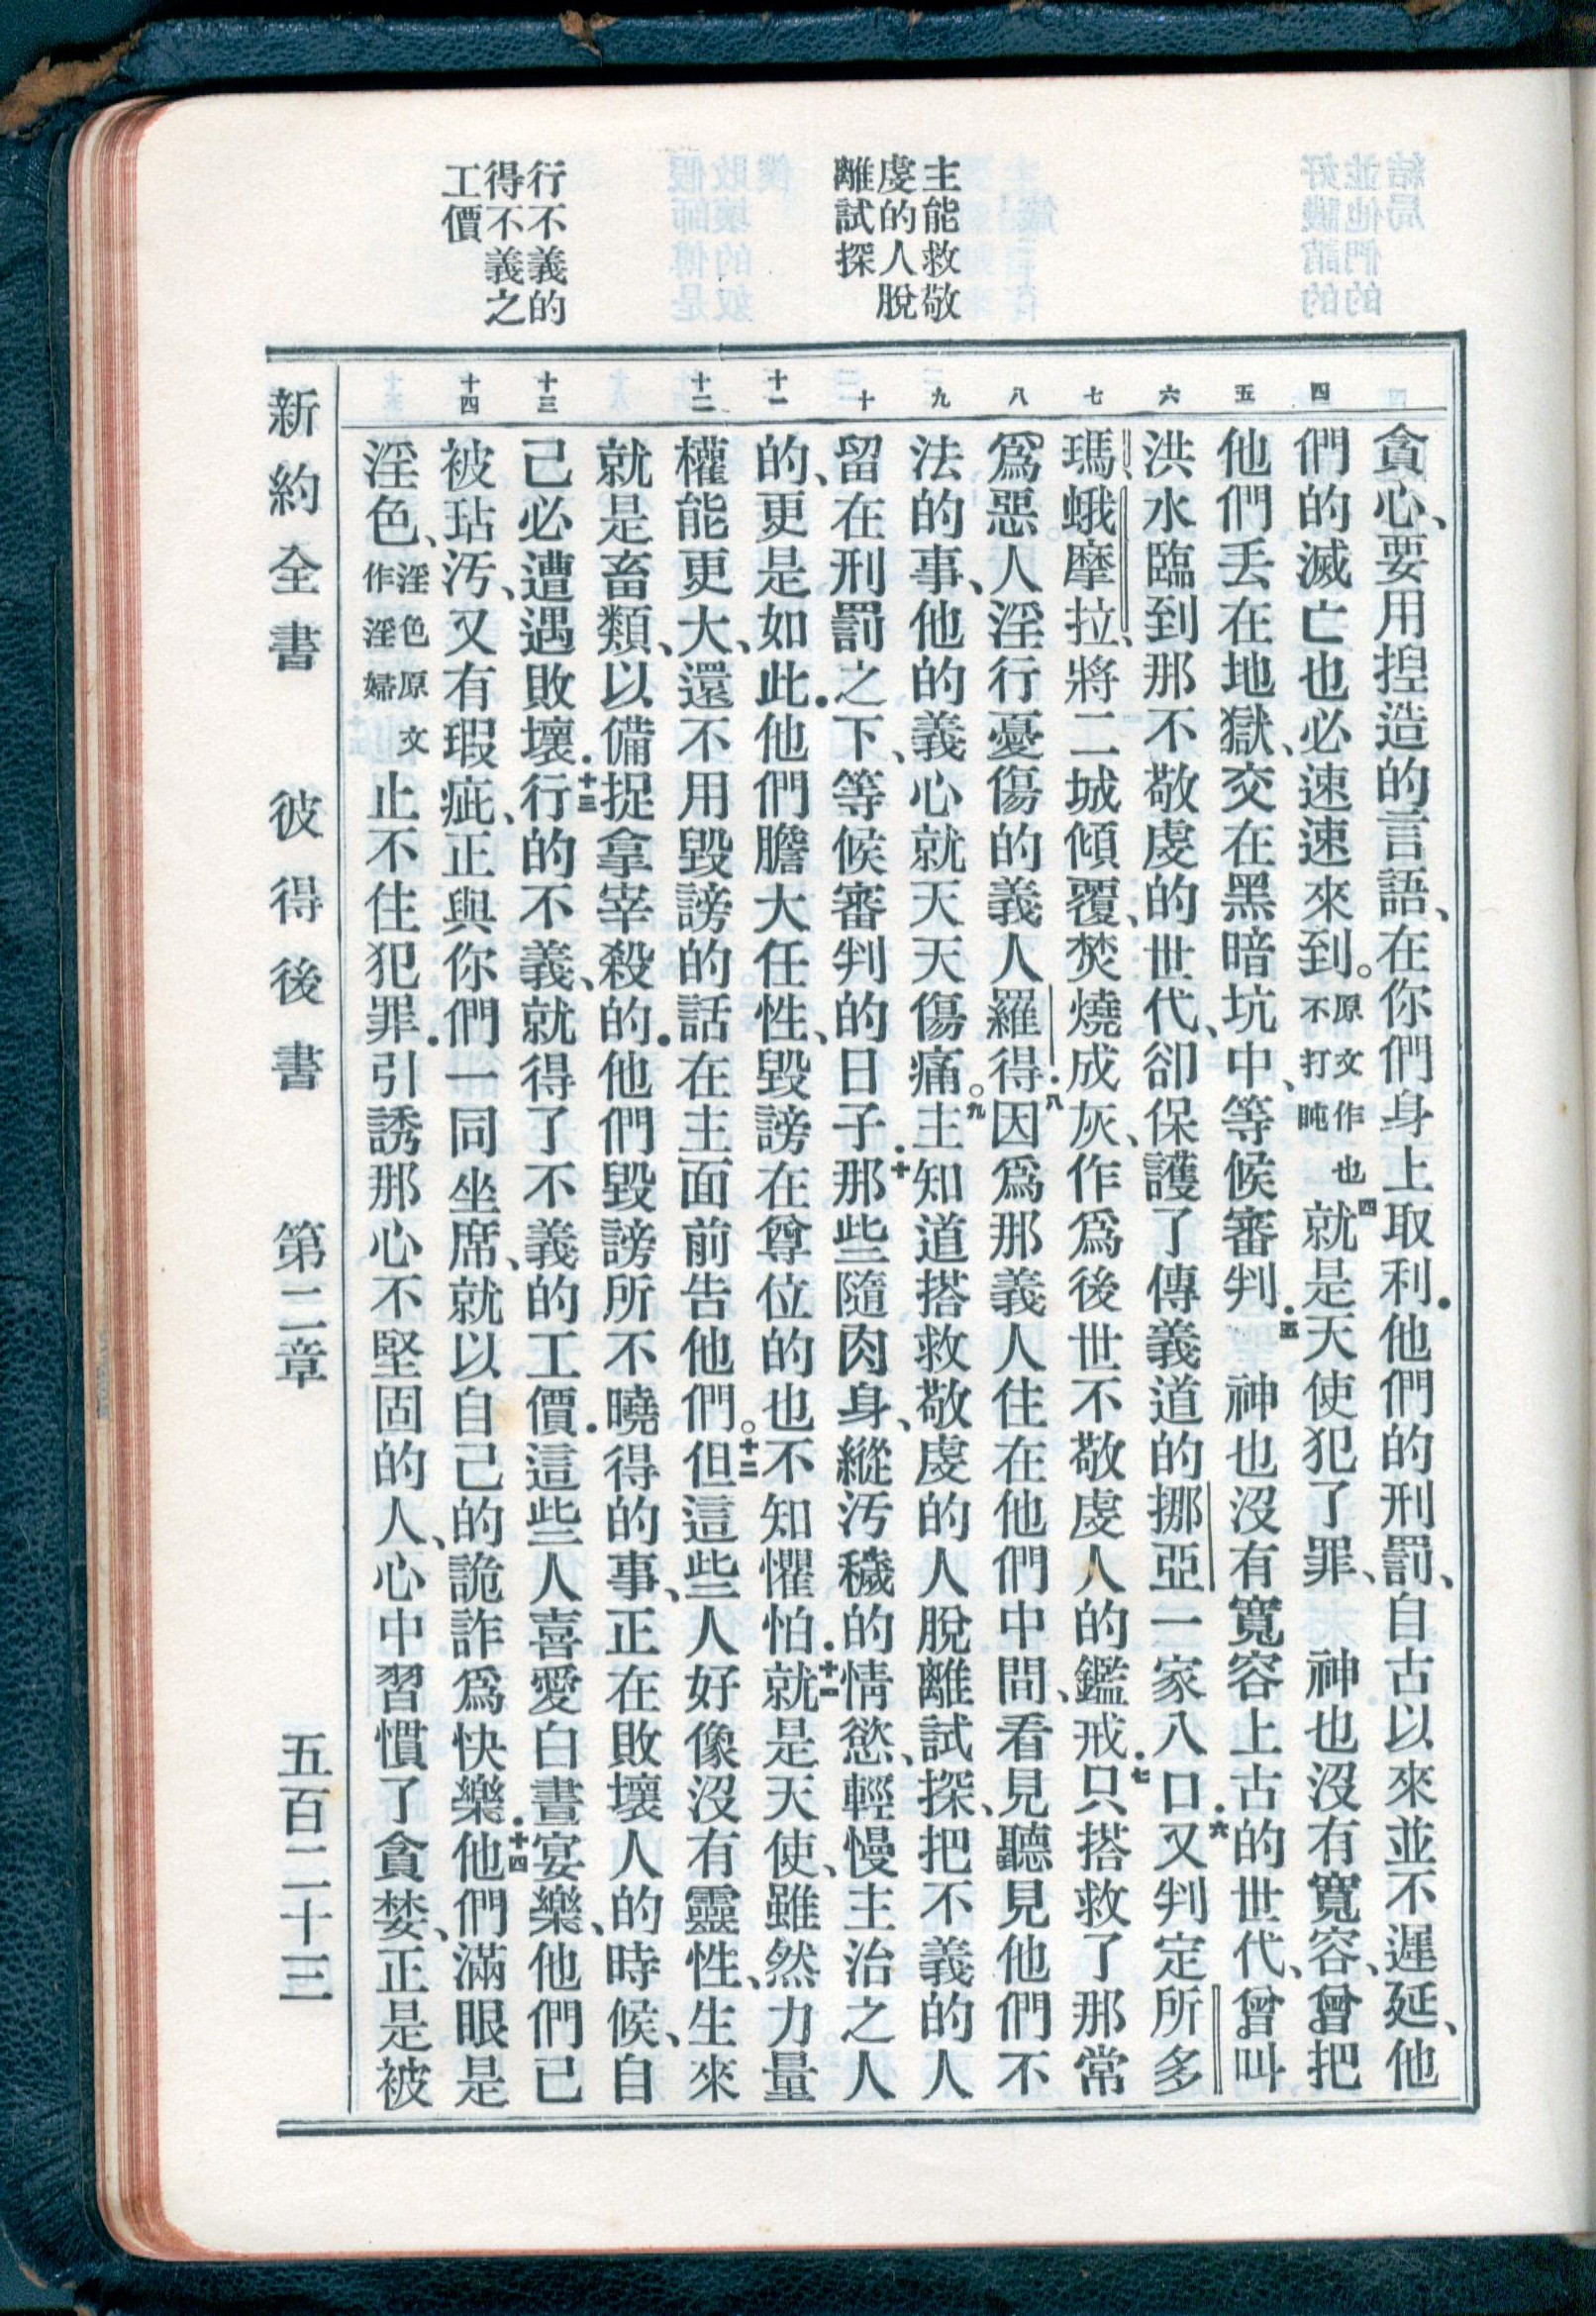 主能救敬
虔的人脫
離試探
行不義的
得不義之
工價
四
五
六
七
八
九
十
十一
十二
十三
十四
貪心、要用揑造的言語、在你們身上取利．他們的刑罰、自古以來並不遲延、他
們的滅亡也必速速來到。原文作也不打盹四就是天使犯了罪、　神也沒有寬容、曾把
他們丟在地獄、交在黑暗坑中、等候審判．五　神也沒有寬容上古的世代、曾叫
洪水臨到那不敬虔的世代、卻保護了傳義道的挪亞一家八口．六又判定所多
瑪、蛾摩拉、將二城傾覆、焚燒成灰、作爲後世不敬虔人的鑑戒．七只搭救了那常
爲惡人淫行憂傷的義人羅得．八因爲那義人住在他們中間、看見聽見他們不
法的事、他的義心就天天傷痛。九主知道搭救敬虔的人脫離試探、把不義的人
留在刑罰之下、等候審判的日子．十那些隨肉身、縱汚穢的情慾、輕慢主治之人
的、更是如此．他們膽大任性、毀謗在尊位的也不知懼怕．十一就是天使、雖然力量
權能更大、還不用毀謗的話在主面前告他們。十二但這些人好像沒有靈性、生來
就是畜類、以備捉拿宰殺的．他們毀謗所不曉得的事、正在敗壞人的時候、自
己必遭遇敗壞．十三行的不義、就得了不義的工價．這些人喜愛白晝宴樂、他們已
被玷汚、又有瑕疵、正與你們一同坐席、就以自己的詭詐爲快樂．十四他們滿眼是
淫色、淫色原文作淫婦止不住犯罪．引誘那心不堅固的人、心中習慣了貪婪、正是被
新約全書　彼得後書　第二章　五百二十三